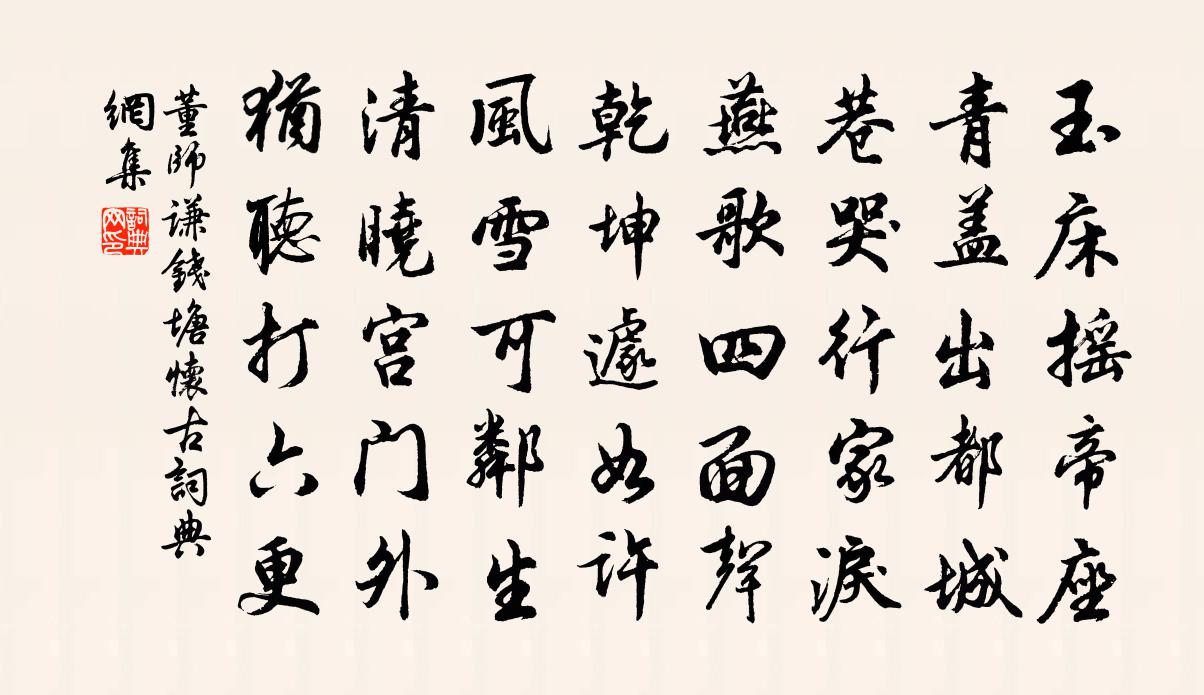 玉床摇帝座
青盖出都城
巷哭行家淚
燕歌四面聲
乾坤遽如許
風雪可鄰生
清曉宫门外
猶聽打六更
董師谦錢塘懷古詞典
網集
詞典
网印